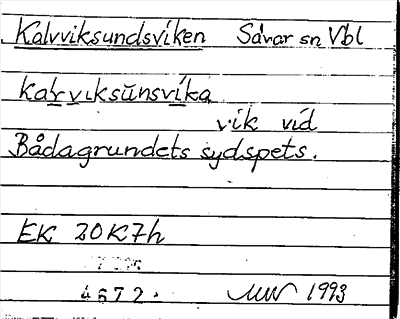 Kalvviksundsviken Sävar sn Vbl
Kaḷvviksŭnsvika
vik vid
Bådagrundets sydspets.
EK 20K7h
4672. 1993